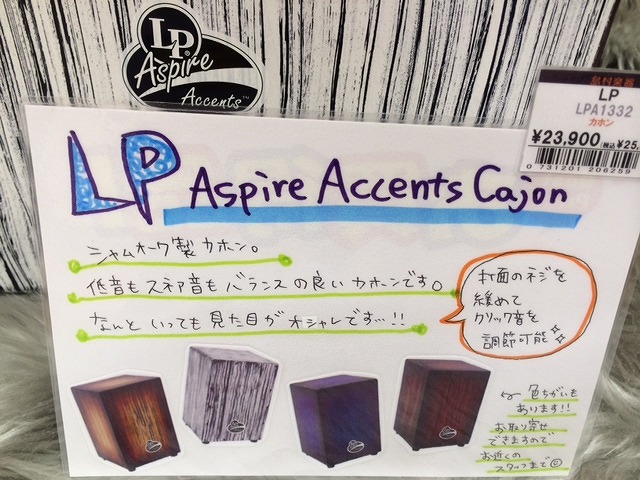 LP
Aspire
Accents™
島村楽器
LP
LPA1332
カホン
¥23,900 税込 ¥25,
0 731201 206259
LP Aspire Accents Cajon
シャムオーク製カホン。
低音もスネア音もバランスの良いカホンです。
なんといっても見た目がオシャレです…!!
打面のネジを
緩めて
クリック音を
調節可能
色ちがいも
あります!!
お取り寄せ
できますので
お近くの
スタッフまで